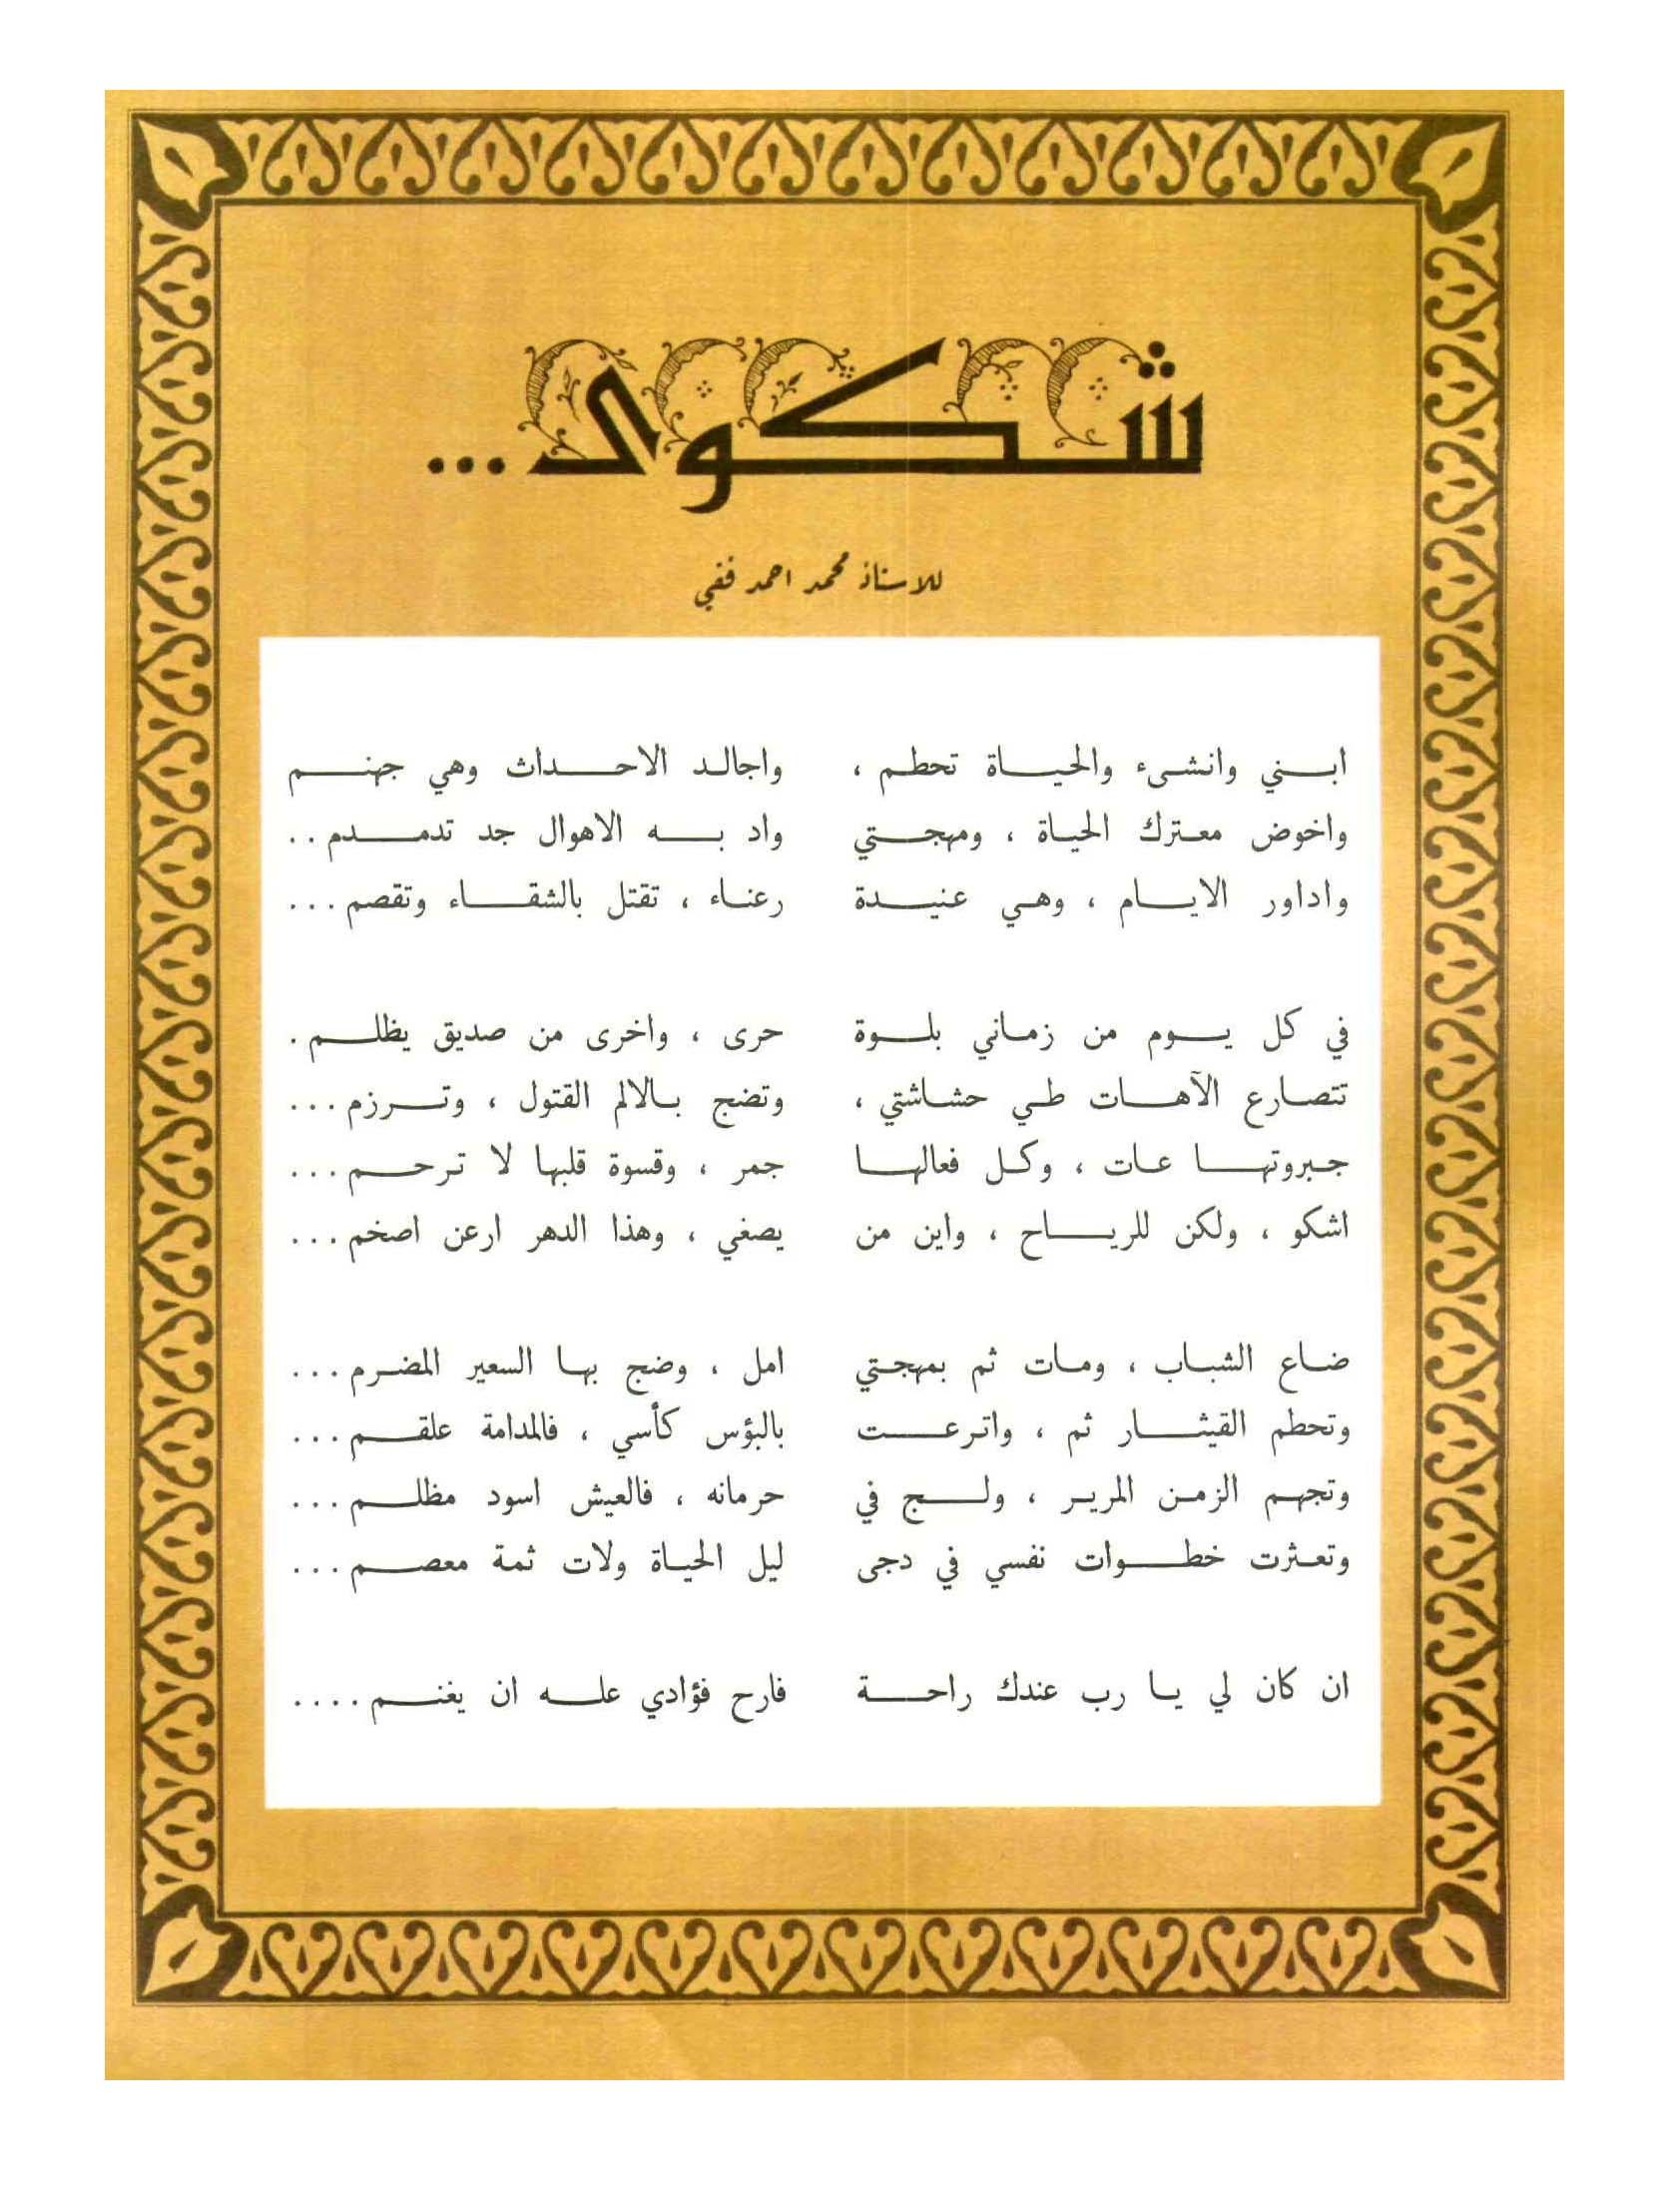 شكوى...
للاستاذ محمد احمد فقي
ابني وانشىء والحياة تحطم ، واجالد الاحداث وهي جهنم
واخوض معترك الحياة ، ومهجتي واد به الاهوال جد تدمدم ..
واداور الايام ، وهي عنيدة رعناء ، تقتل بالشقاء وتقصم ...
في كل يوم من زماني بلوة حرى ، واخرى من صديق يظلم .
تتصارع الآهات طي حشاشتي ، وتضج بالالم القتول ، وترزم ...
جبروتها عات ، وكل فعالها جمر ، وقسوة قلبها لا ترحم ...
اشكو ، ولكن للرياح ، واين من يصغي ، وهذا الدهر ارعن اصخم ...
ضاع الشباب ، ومات ثم بمهجتي امل ، وضج بها السعير المضرم ...
وتحطم القيثار ثم ، واترعت بالبؤس كأسي ، فالمدامة علقم ...
وتجهم الزمن المرير ، ولج في حرمانه ، فالعيش اسود مظلم ...
وتعثرت خطوات نفسي في دجى ليل الحياة ولات ثمة معصم ...
ان كان لي يا رب عندك راحة فارح فؤادي عله ان يغنم ....